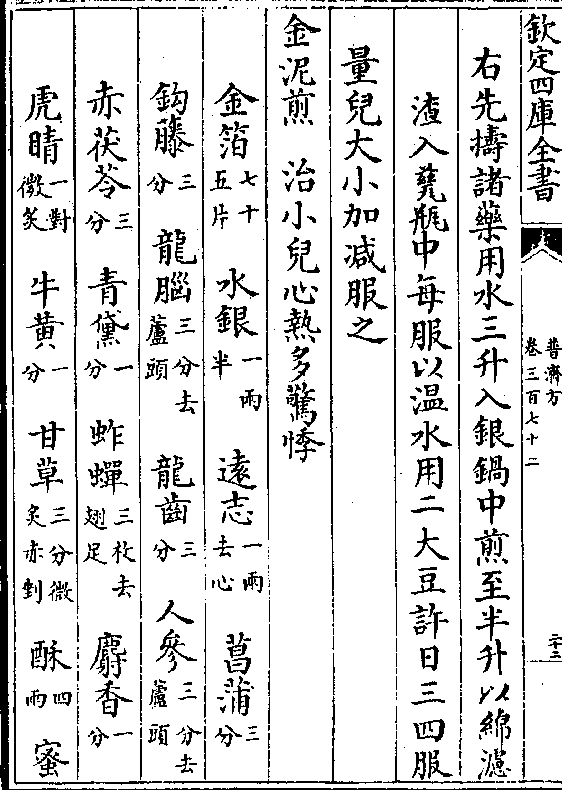 欽定四庫全書
普濟方
卷三百七十二
二十二
右先擣諸藥用水三升入銀鍋中煎至半升以綿濾
渣入甆瓶中每服以温水用二大豆許日三四服
量兒大小加減服之
金泥煎 治小兒心熱多驚悸
金箔七十五片 水銀一兩半 遠志一兩去心 菖蒲三分
鈎藤三分 龍腦三分去蘆頭 龍齒三分 人參三分去蘆頭
赤茯苓三分 青黛一分 蚱蟬三枚去翅足 麝香一分
虎睛一對微炙 牛黄一分 甘草三分微炙赤剉 酥四兩 蜜